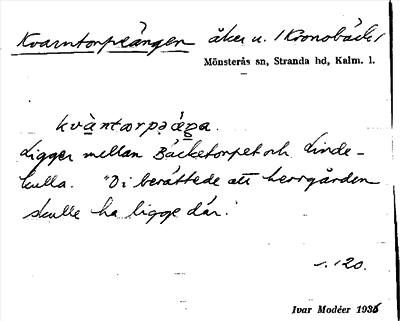 Kvarntorpeängen åker u. /Kronobäck/
Mönsterås sn, Stranda hd, Kalm. l.
Ligger mellan Bäcketorpet och Linde-
kulla. "Di berättede att herrgården
skulle ha ligge där."
120.
Ivar Modéer 1936